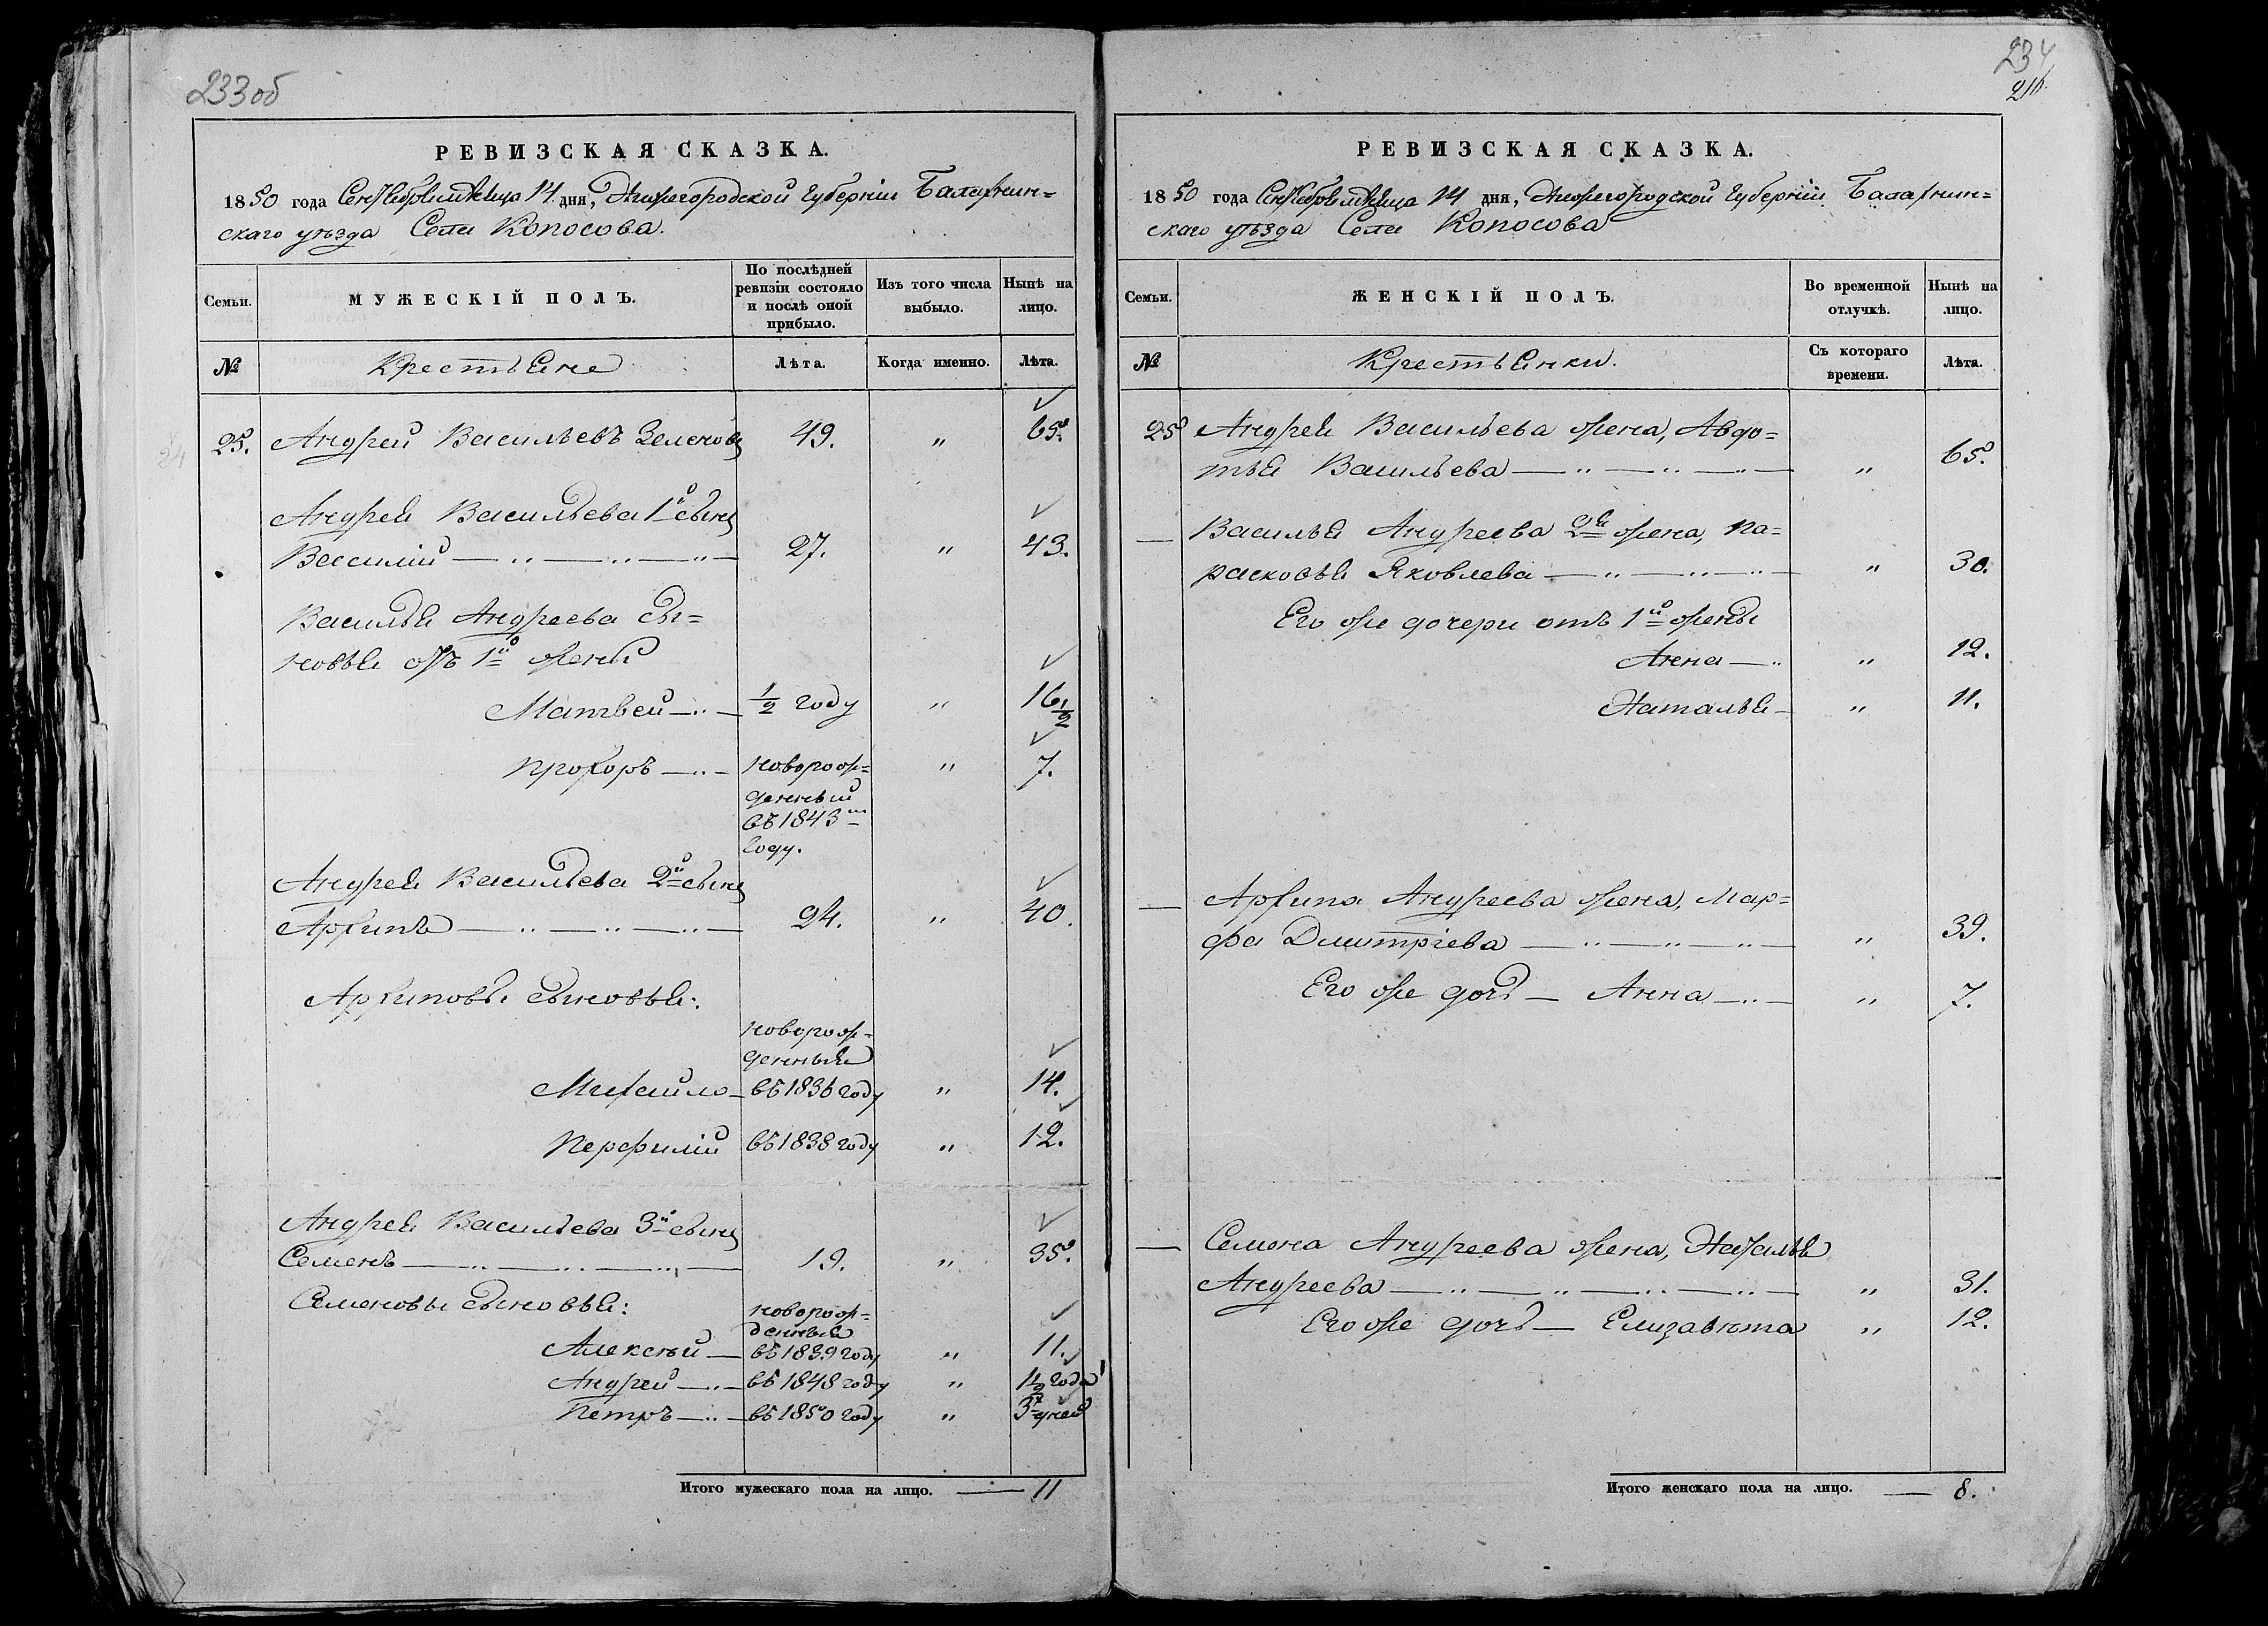 233 об
РЕВИЗСКАЯ СКАЗКА.
1850 года Сентября мѣсяца 14 дня, Нижегородской губерніи Балахнин=
скаго уѣзда Села Копосова.
Семьи.
МУЖЕСКІЙ ПОЛЪ.
По послѣдней ревизіи состояло и послѣ оной прибыло.
Изъ того числа выбыло.
Нынѣ на лицо.
№
Крестьяне
Лѣта.
Когда именно.
Лѣта.
24
25. Андрей Васильевъ Зеленовъ 49. " 65.
Андрея Васильева 1й сынъ
Василій 27. " 43.
Василья Андреева сы=
новья отъ 1й жены
Матвей 1/2 году " 16 1/2
Прохоръ новорож= " 7.
денный
въ 1843м
году.
Андрея Васильева 2й сынъ
Архипъ 24. " 40.
Архиповы сыновья:
новорож=
денныя
Михайло въ 1836 году " 14.
Перфилій въ 1838 году " 12.
Андрея Васильева 3й сынъ
Семенъ 19. " 35.
Семеновы сыновья: новорож=
денныя
Алексѣй въ 1839 году " 11.
Андрей въ 1848 году " 1 1/2 года
Петръ въ 1850 году " 3 дней
Итого мужескаго пола на лицо. 11
234
РЕВИЗСКАЯ СКАЗКА.
1850 года Сентября мѣсяца 14 дня, Нижегородской губерніи Балахнин=
скаго уѣзда Села Копосова
Семьи.
ЖЕНСКІЙ ПОЛЪ.
Во временной отлучкѣ.
Нынѣ на лицо.
№
Крестьянки.
Съ котораго времени.
Лѣта.
25 Андрея Васильева жена, Авдо=
тья Васильева " 65.
Василья Андреева 2я жена, Па=
расковья Яковлева " 30.
Его же дочери отъ 1й жены
Анна " 12.
Наталья " 11.
Архипа Андреева жена, Мар=
фа Дмитріева " 39.
Его же дочь Анна " 7.
Семена Андреева жена, Наталья
Андреева " 31.
Его же дочь Елизавета " 12.
Итого женскаго пола на лицо. 8.